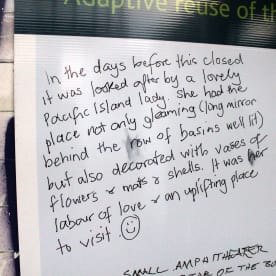 Adaptive reuse of th
In the days before this closed
it was looked after by a lovely
Pacific Island lady. She had the
place not only gleaming (long mirror
behind the row of basins well lit)
but also decorated with vases of
flowers & mats & shells. It was her
labour of love & an uplifting place
to visit ☺
SMALL AMPHITHEATER
OF THE BO